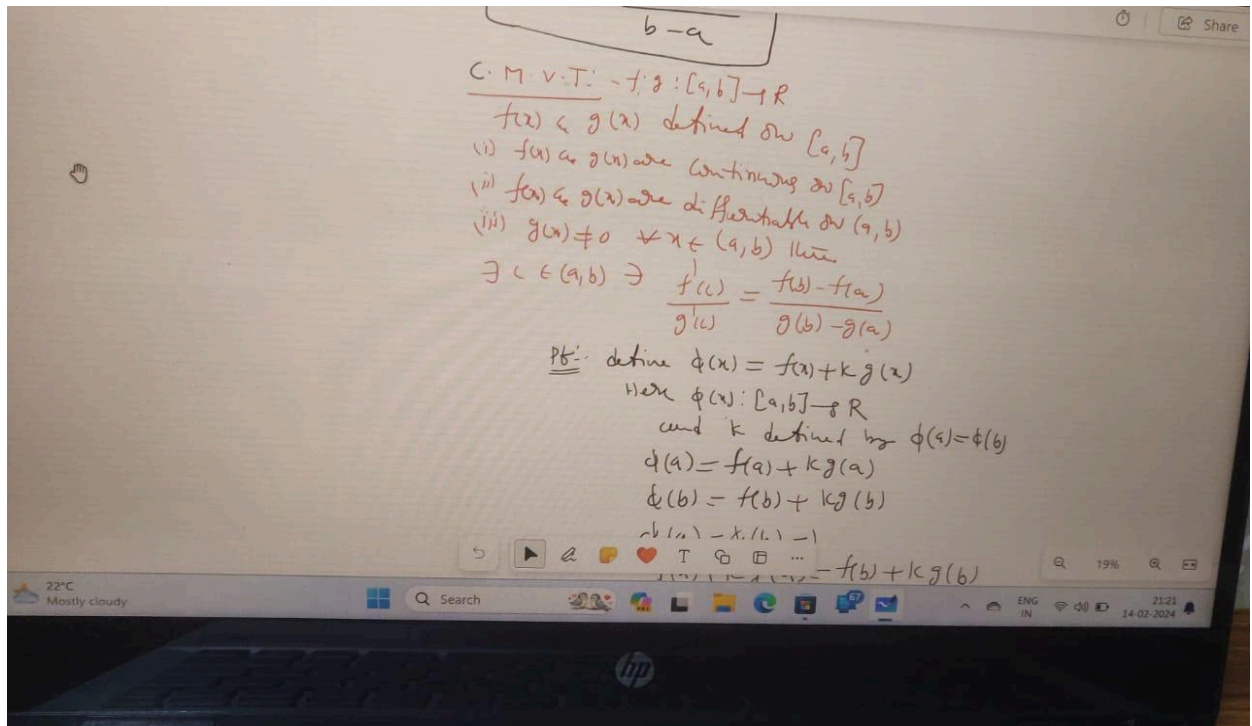 b-a
Share
C. M. V. T: - f, g : [a,b] → R
f(x) & g(x) defined on [a,b]
(i) f(x) & g(x) are continuous on [a,b]
(ii) f(x) & g(x) are differentiable on (a,b)
(iii) g(x) ≠ 0 ∀ x ∈ (a,b) then
∃ c ∈ (a,b) ∋ f'(c)/g'(c) = f(b)-f(a)/g(b)-g(a)
Pf:- define ϕ(x) = f(x)+k g(x)
Here ϕ(x): [a,b] → R
and k defined by ϕ(a)=ϕ(b)
ϕ(a) = f(a) + kg(a)
ϕ(b) = f(b) + kg(b)
- f(b) + kg(b)
T
...
19%
22°C
Mostly cloudy
Search
67
ENG
IN
21:21
14-02-2024
hp